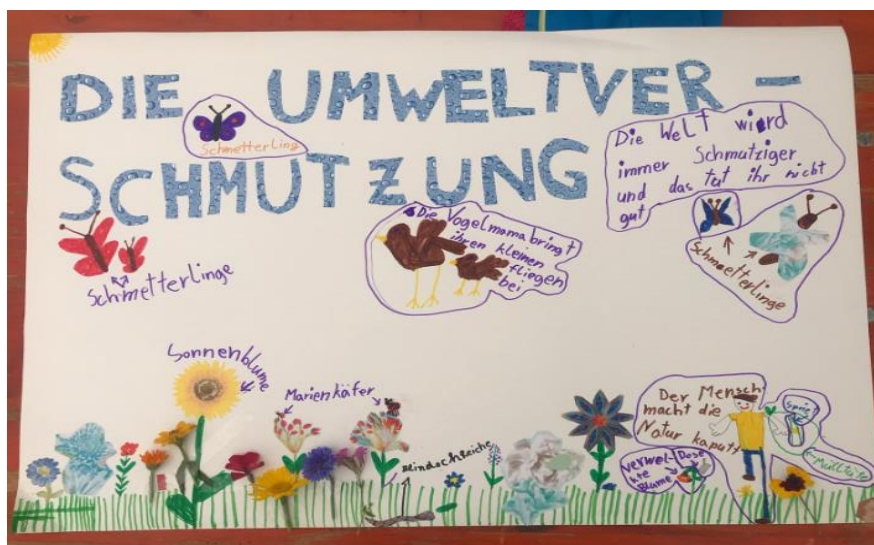 DIE UMWELTVER -
SCHMUTZUNG
Schmetterling
Die Welt wird
immer Schmutziger
und das tut ihr nicht
gut
Schmetterlinge
Die Vogelmama bringt
ihren kleinen
fliegen
bei
Schmetterlinge
Sonnenblume
Marienkäfer
Blindschleiche
Der Mensch
macht die
Natur kaputt
Verwel-
kte
Blume
Dose
Mülltüte